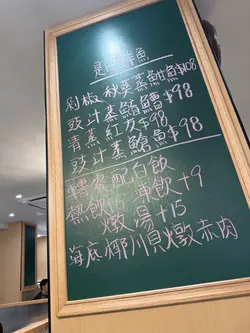 是日蒸魚
剁椒秋葵蒸鮰魚$108
豉汁蒸鯧鱠$98
清蒸紅友$98
豉汁蒸鯧魚$98
轉瓷配白飲
熱飲+6 凍飲+9
燉湯+15
海底椰川貝燉赤肉